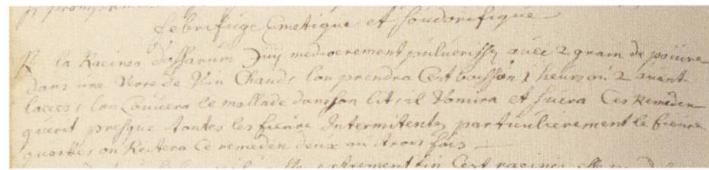 febrifuge Emetique et soudorifique
R la Racines dassarum Ʒiij mediocrement pulverissez avec 2 grain de poivre
dans une Verre de Vin Chaud, lon prendra Cest boisson 1 heure ou 2 avant
lacces, lon Couvera le mallade dans son lit, il Vomira et suera Ces Remede
querit presque toutes les fievre Intermitente particulierement le fievre
quartes on Reitera Ce remede deux ou trois fois